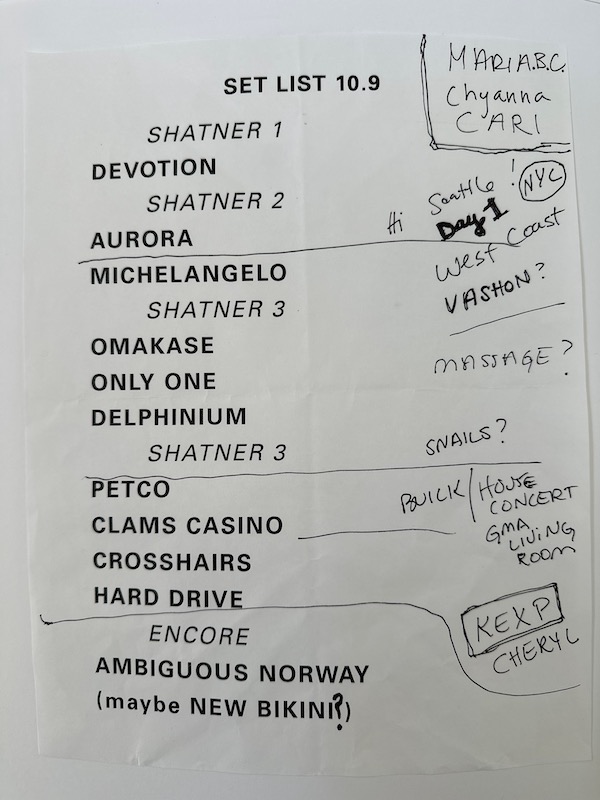 MARIA.B.C.
Chyanna
CARI
SET LIST 10.9
SHATNER 1
DEVOTION
SHATNER 2
Hi Seattle! NYC
Day 1
AURORA
West Coast
MICHELANGELO
VASHON?
SHATNER 3
OMAKASE
MASSAGE?
ONLY ONE
DELPHINIUM
SNAILS?
SHATNER 3
PETCO
BUICK / HOUSE
CONCERT
GMA
LIVING
ROOM
CLAMS CASINO
CROSSHAIRS
HARD DRIVE
KEXP
CHERYL
ENCORE
AMBIGUOUS NORWAY
(maybe NEW BIKINI?)